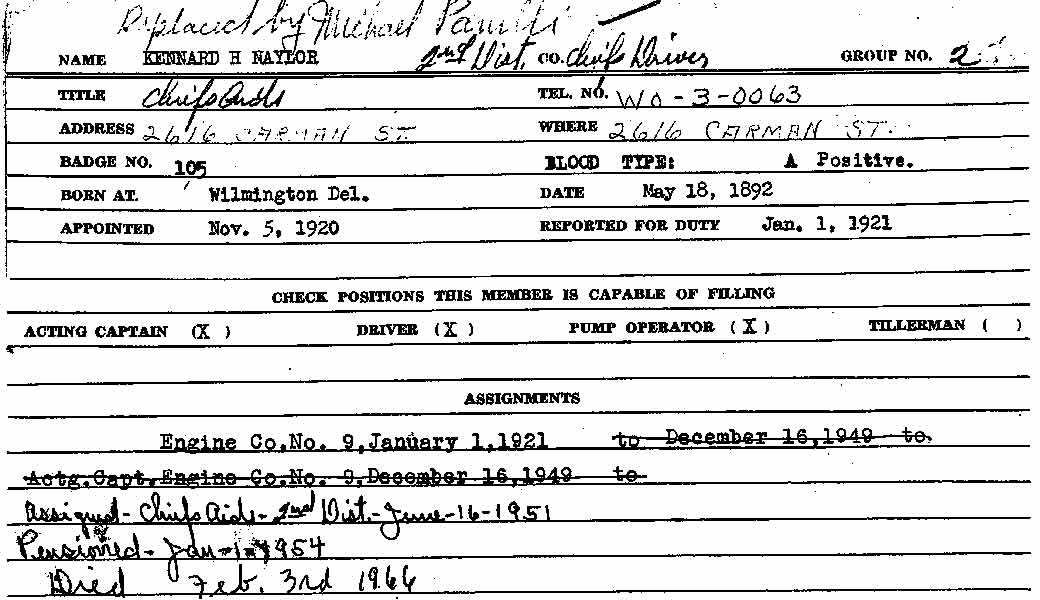 Replaced by Michael
NAME KENNARD H NAYLOR 2nd Dist. CO. Chiefs Driver GROUP NO. 2
TITLE Chiefs Aide TEL. NO. WO-3-0063
ADDRESS 2616 CARMAN ST WHERE 2616 CARMAN ST.
BADGE NO. 105 BLOOD TYPE: A Positive.
BORN AT. Wilmington Del. DATE May 18, 1892
APPOINTED Nov. 5, 1920 REPORTED FOR DUTY Jan. 1, 1921
CHECK POSITIONS THIS MEMBER IS CAPABLE OF FILLING
ACTING CAPTAIN (X ) DRIVER (X ) PUMP OPERATOR ( X ) TILLERMAN ( )
ASSIGNMENTS
Engine Co.No. 9,January 1,1921 to December 16,1949 to
Actg.Capt.Engine Co.No. 9,December 16,1949 to
Assigned- Chiefs Aide- 2nd Dist.- June-16-1951
Pensioned- Jan-1-1954
Died Feb. 3rd 1966